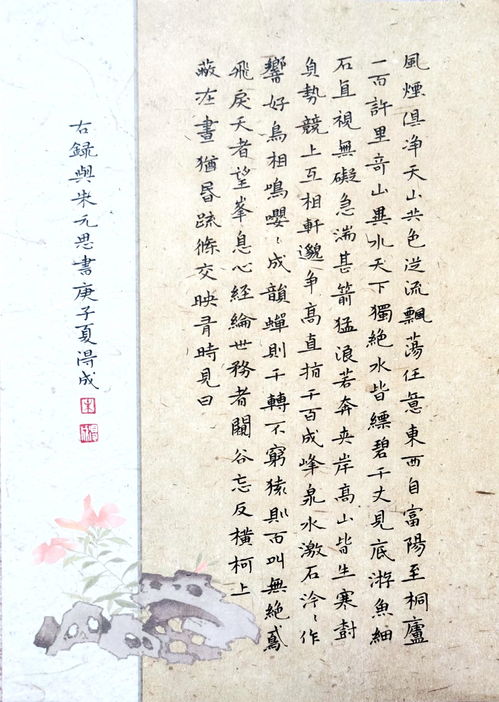 風煙俱净天山共色從流飄蕩任意東西自富陽至桐廬
一百許里奇山異水天下獨絶水皆縹碧千丈見底游魚細
石直視無礙急湍甚箭猛浪若奔夾岸高山皆生寒樹
負勢競上互相軒邈争高直指千百成峰泉水激石泠〻作
響好鳥相鳴嚶〻成韻蟬則千轉不窮猿則百叫無絶鳶
飛戾天者望峯息心經綸世務者闚谷忘反橫柯上
蔽在晝猶昏疏條交映有時見日
右録與朱元思書庚子夏湯成